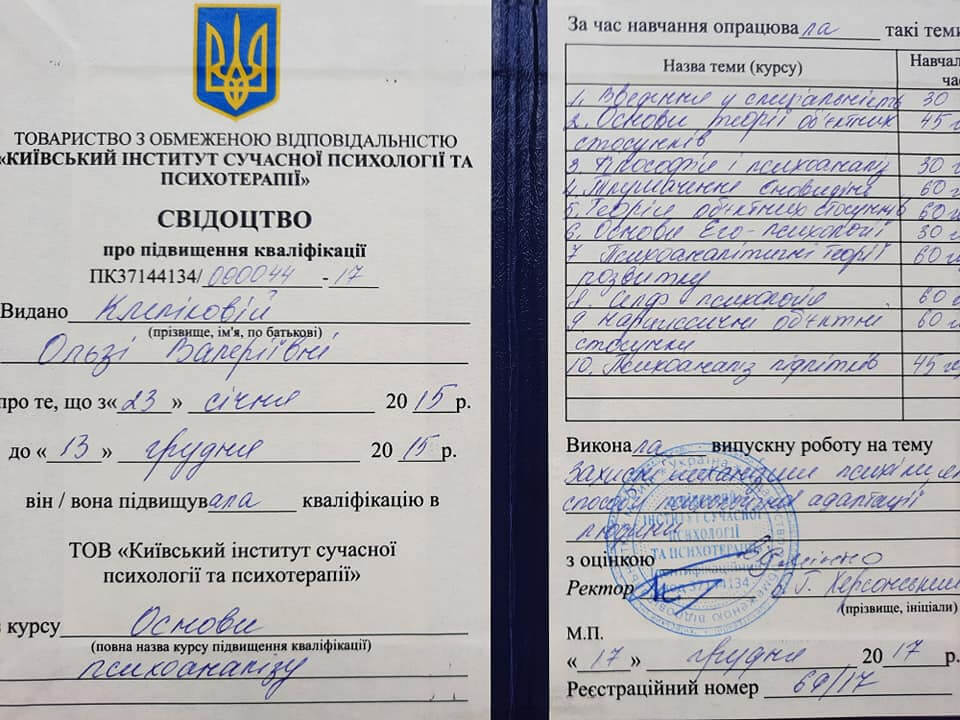 ТОВАРИСТВО З ОБМЕЖЕНОЮ ВІДПОВІДАЛЬНІСТЮ
«КИЇВСЬКИЙ ІНСТИТУТ СУЧАСНОЇ ПСИХОЛОГІЇ ТА
ПСИХОТЕРАПІЇ»
СВІДОЦТВО
про підвищення кваліфікації
ПК37144134/ 000044 - 17
Видано
(прізвище, ім'я, по батькові)
Ользі Валеріївні
про те, що з« 23 » січня 20 15 р.
до « 13 » грудня 20 15 р.
він / вона підвищувала кваліфікацію в
ТОВ «Київський інститут сучасної
психології та психотерапії»
з курсу Основи
(повна назва курсу підвищення кваліфікації)
психоаналізу
За час навчання опрацювала такі теми
Назва теми (курсу) Навчал
час
1. Введення у спеціальність 30
2. Основи теорії об'єктних 45 г
стосунків
3. Філософія і психоаналіз 30 г
4. Тлумачення сновидінь 60 г
5. Теорія об'єктних стосунків 60 г
6. Основи Его-психології 30 г
7 Психоаналітичні теорії 60 г
розвитку
8. Селф психологія 60 г
9. Нарциссичні об'єктні 60 г
стосунки
10. Психоаналіз підлітків 45 г
Виконала випускну роботу на тему
Захисні механізми психіки,
способи адаптації
людини
з оцінкою відмінно
Ректор Г. Херсонський
(прізвище, ініціали)
М.П.
« 17 » грудня 20 17 р.
Реєстраційний номер 69/17
ІНСТИТУТ СУЧАСНОЇ
ПСИХОЛОГІЇ
ТА ПСИХОТЕРАПІЇ